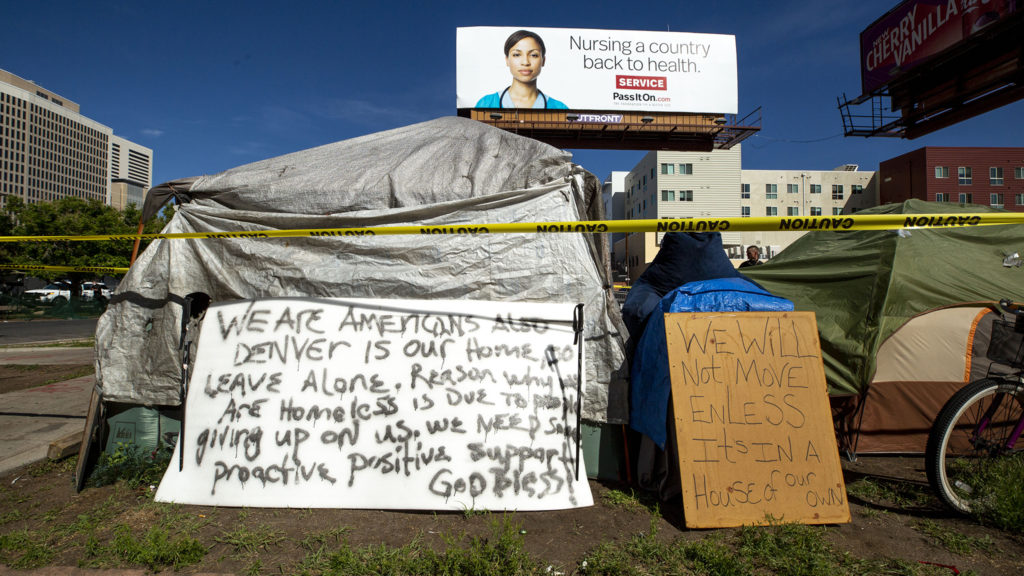 Nursing a country
back to health.
SERVICE
PassItOn.com
OUTFRONT
CHERRY
VANILLA
CAUTION CAUTION CAUTION CAUTION CAUTION
WE ARE AMERICANS ALSO
DENVER IS OUR HOME, SO
LEAVE ALONE. REASON WHY
ARE HOMELESS IS DUE TO PEOPLE
giving up on us. WE NEED SOME
proactive positive support
GOD Bless!
WE WILL
NOT MOVE
ENLESS
ITS IN A
HOUSE of our
OWN